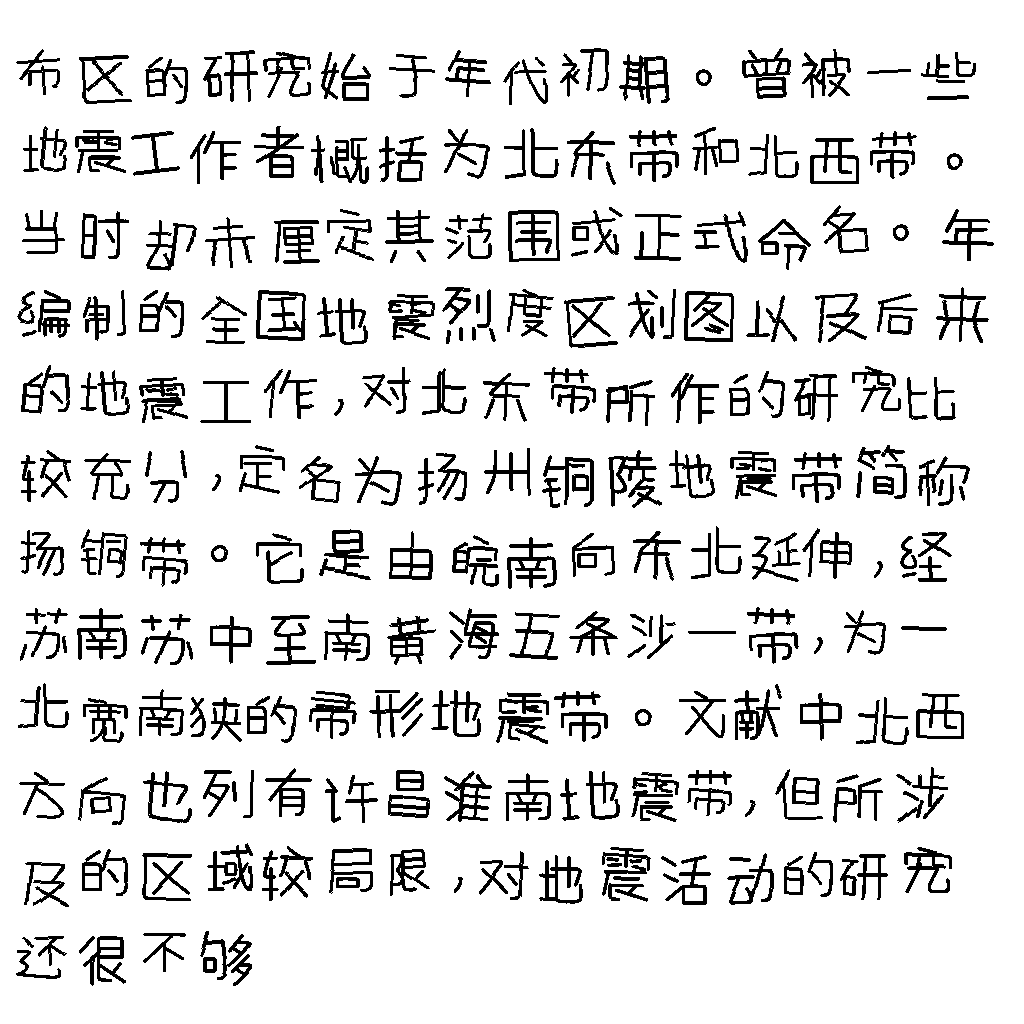 布区的研究始于年代初期。曾被一些
地震工作者概括为北东带和北西带。
当时却未厘定其范围或正式命名。年
编制的全国地震烈度区划图以及后来
的地震工作,对北东带所作的研究比
较充分,定名为扬州铜陵地震带简称
扬铜带。它是由皖南向东北延伸,经
苏南苏中至南黄海五条沙一带,为一
北宽南狭的帚形地震带。文献中北西
方向也列有许昌淮南地震带,但所涉
及的区域较局限,对地震活动的研究
还很不够